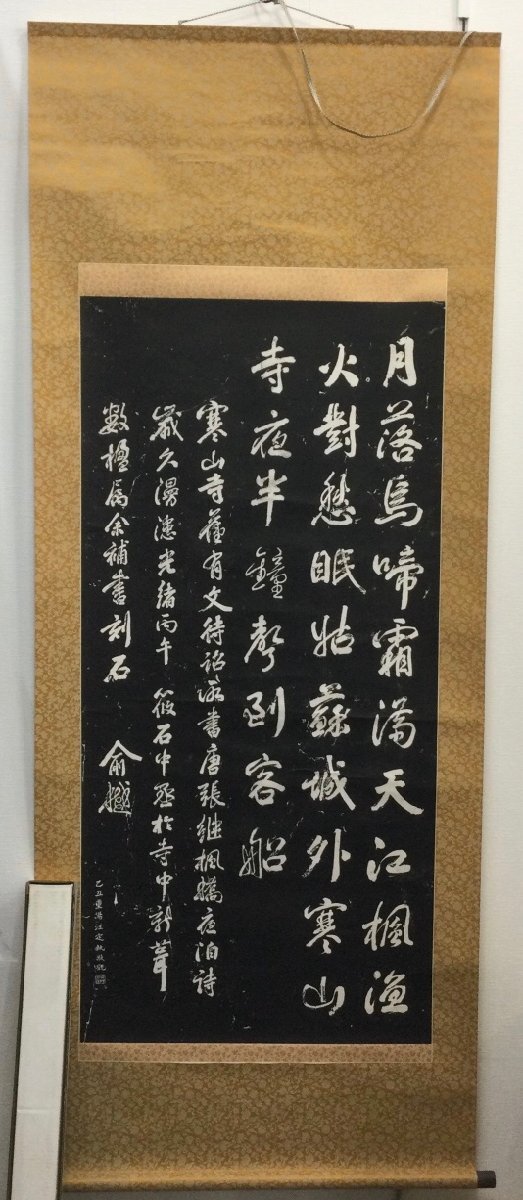 月落烏啼霜滿天江楓漁
火對愁眠姑蘇城外寒山
寺夜半鐘聲到客船
寒山寺舊有文待詔所書唐張继楓橋夜泊詩
歲久漫漶光緒丙午 筱石中丞於寺中新葺
數楹属余補書刻石
俞樾